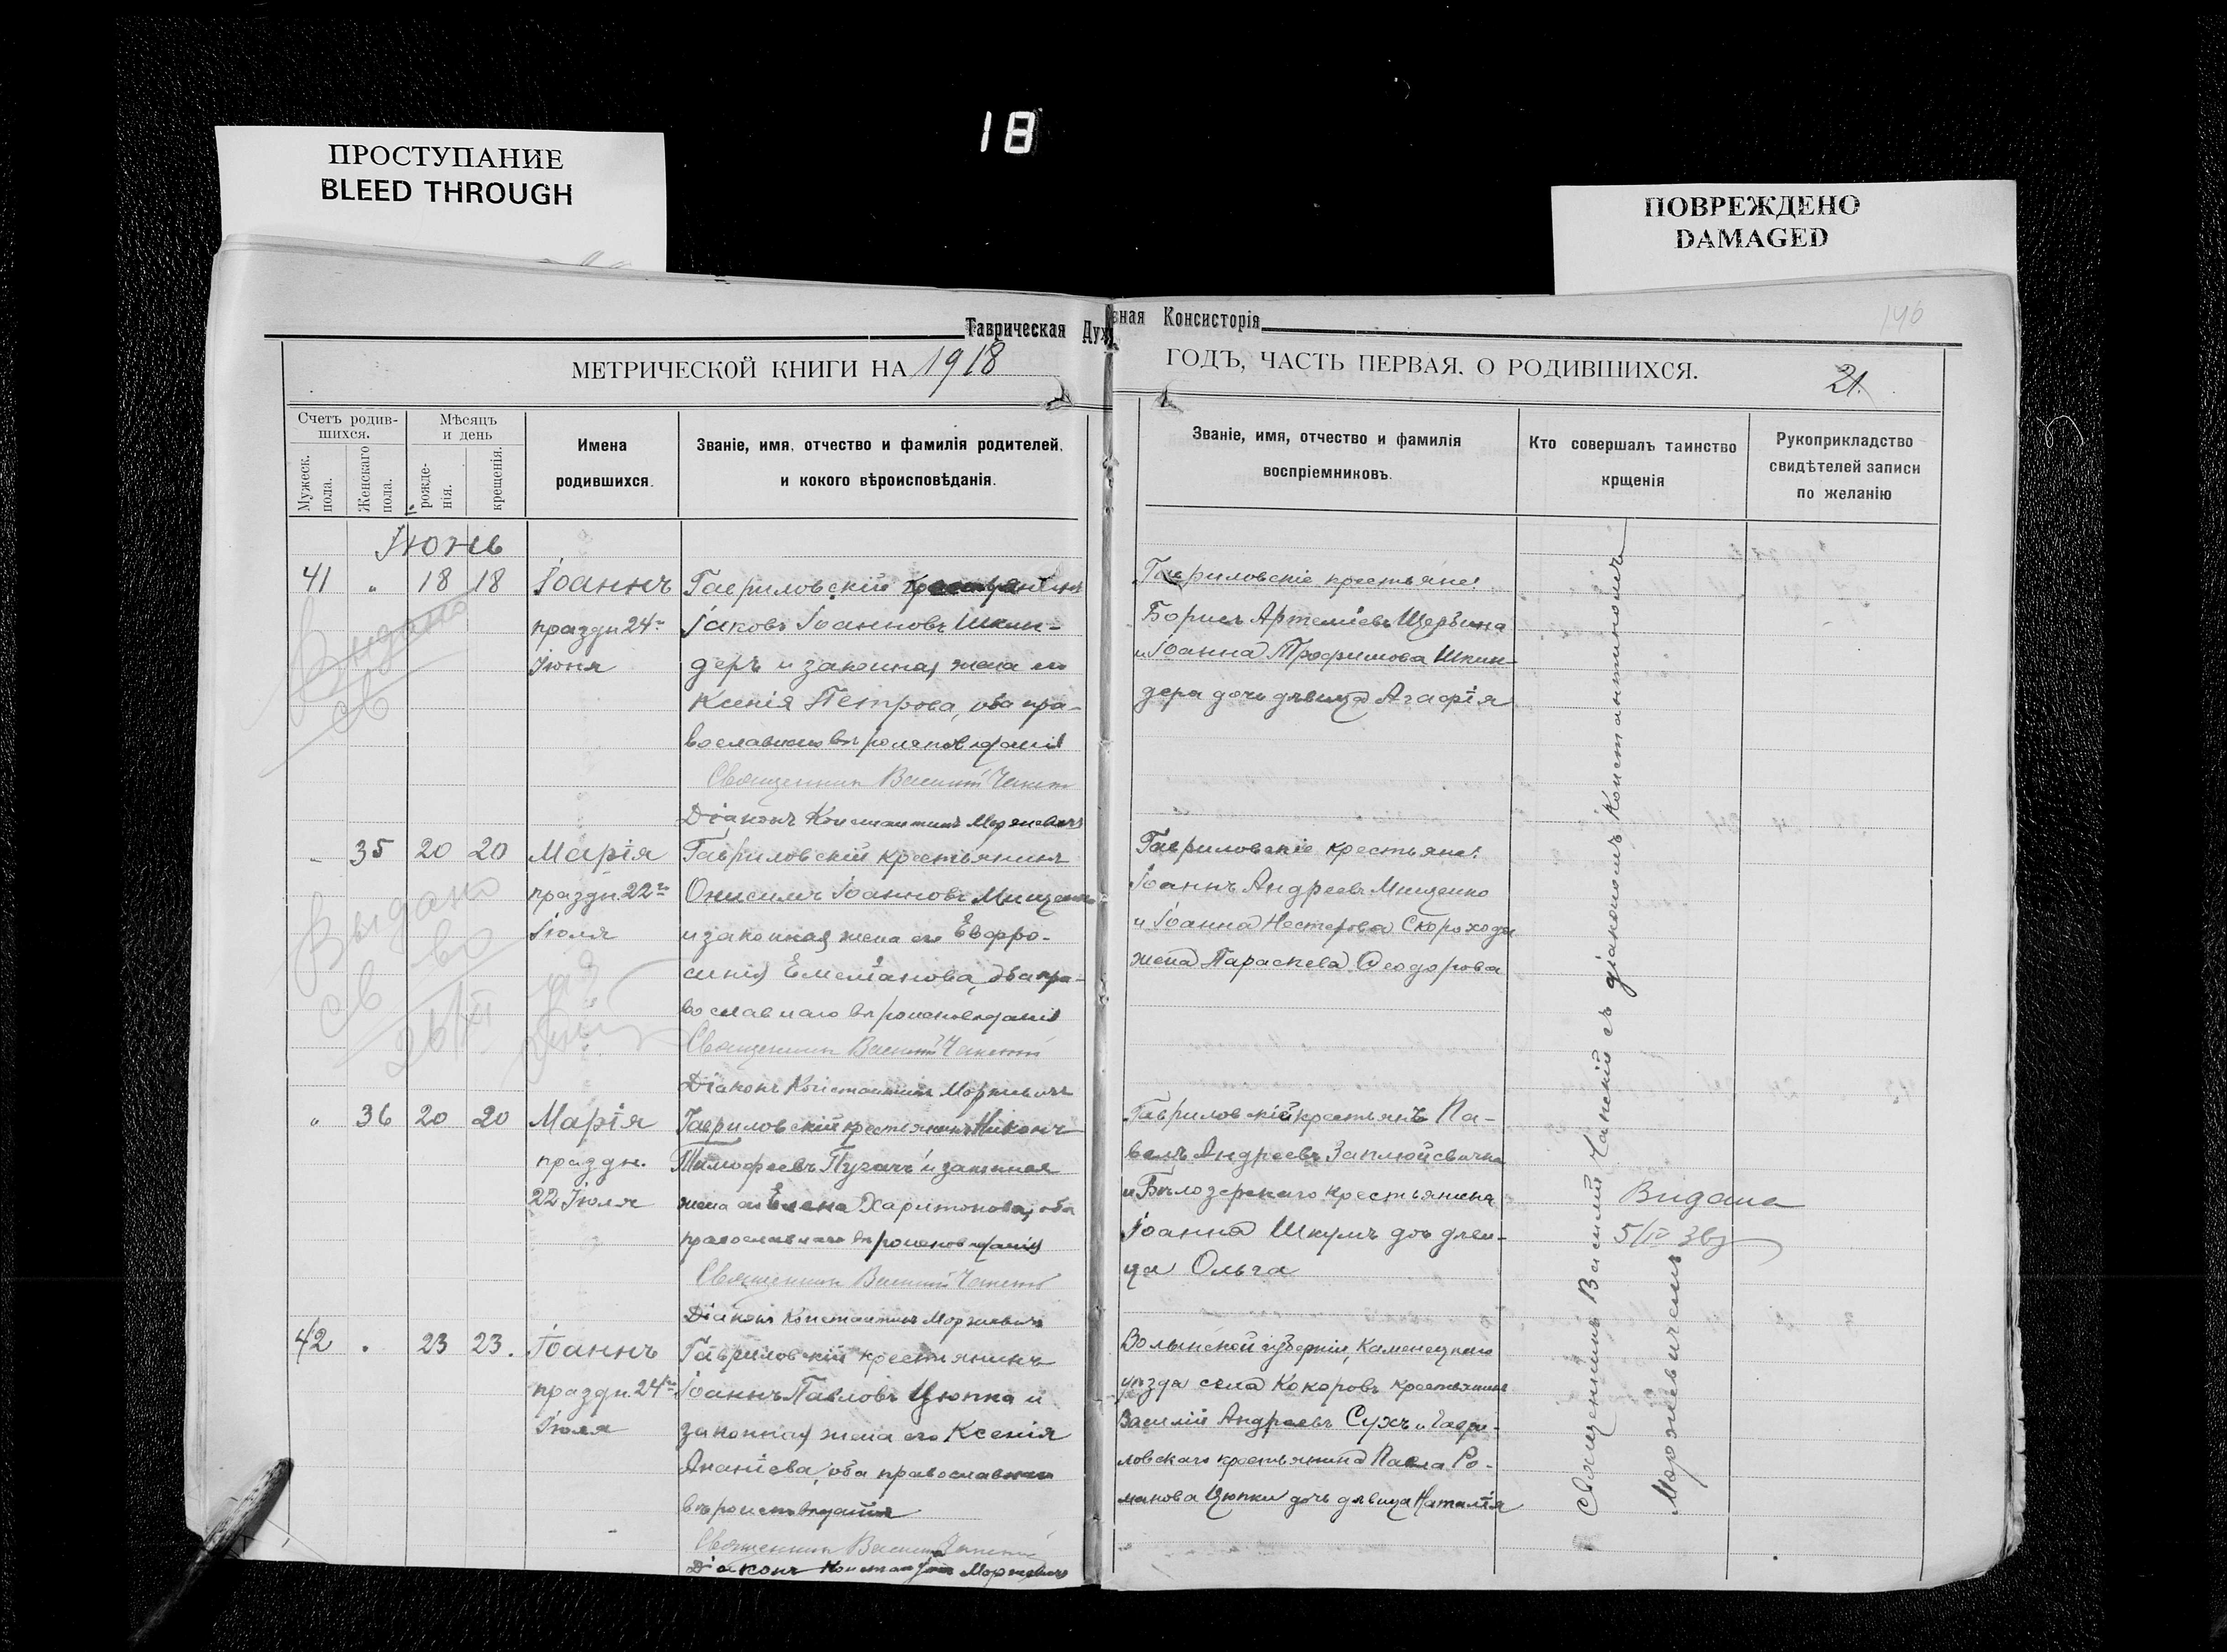 18
ПРОСТУПАНИЕ
BLEED THROUGH
ПОВРЕЖДЕНО
DAMAGED
Таврическая Духовная Консисторія
146
МЕТРИЧЕСКОЙ КНИГИ НА 1918 ГОДЪ, ЧАСТЬ ПЕРВАЯ. О РОДИВШИХСЯ.
21.
Счетъ родив-
шихся.
Мужеск.
пола.
Женскаго
пола.
Мѣсяцъ
и день
рожде-
нія.
крещенія.
Имена
родившихся.
Званіе, имя, отчество и фамилія родителей,
и кокого вѣроисповѣданія.
Званіе, имя, отчество и фамилія
воспріемниковъ.
Кто совершалъ таинство
крщенія
Рукоприкладство
свидѣтелей записи
по желанію
Іюнь
41 " 18 18 Іоаннъ
праздн 24го
Іюня
Гавриловскій крестьянинъ
Іаковъ Іоанновъ Шкин-
деръ и законная жена его
Ксенія Петрова, оба пра-
вославнаго вѣроисповѣданія
Священникъ Василій
Діаконъ Константинъ Моржевичъ
Гавриловскіе крестьяне:
Борисъ Артеміевъ Щербина
и Іоанна Трофимова Шкин-
дера дочь дѣвица Агафія
Выдано
св
- 35 20 20 Марія
праздн 22го
Іюля
Гавриловскій крестьянинъ
Онисимъ Іоанновъ Мищенко
и законная жена его Евфро-
синія Емеліанова, оба пра-
вославнаго вѣроисповѣданія
Священникъ Василій
Діаконъ Константинъ Моржевичъ
Гавриловскіе крестьяне:
Іоаннъ Андреевъ Мищенко
и Іоанна Нестерова Скорохода
жена Параскева Ѳеодорова
Выдано
св во
26/III
" 36 20 20 Марія
праздн.
22 Іюля
Гавриловскій крестьянинъ Никонъ
Тимофеевъ Пугачъ и законная
жена его Елена Харитонова, оба
православнаго вѣроисповѣданія
Священникъ Василій
Діаконъ Константинъ Моржевичъ
Гавриловскій крестьянъ Па-
велъ Андреевъ Заплюйсвичка
и Бѣлозерскаго крестьянина
Іоанна Шкумъ дочь дѣви-
ца Ольга
Видана
5/IV
42 . 23 23. Іоаннъ
праздн 24го
Іюля
Гавриловскій крестьянинъ
Іоаннъ Павловъ Цюпка и
законная жена его Ксенія
Ананіева, оба православнаго
вѣроисповѣданія
Священникъ Василій
Діаконъ Константинъ Моржевичъ
Волынской губерніи, Каменецкаго
уѣзда села Кокоровъ крестьянинъ
Василій Андреевъ Сухъ и Гаври-
ловскаго крестьянина Павла Ро-
манова Цюпки дочь дѣвица Наталія
Священникъ Василій Чапскій съ діакономъ Константиномъ
Моржевичемъ